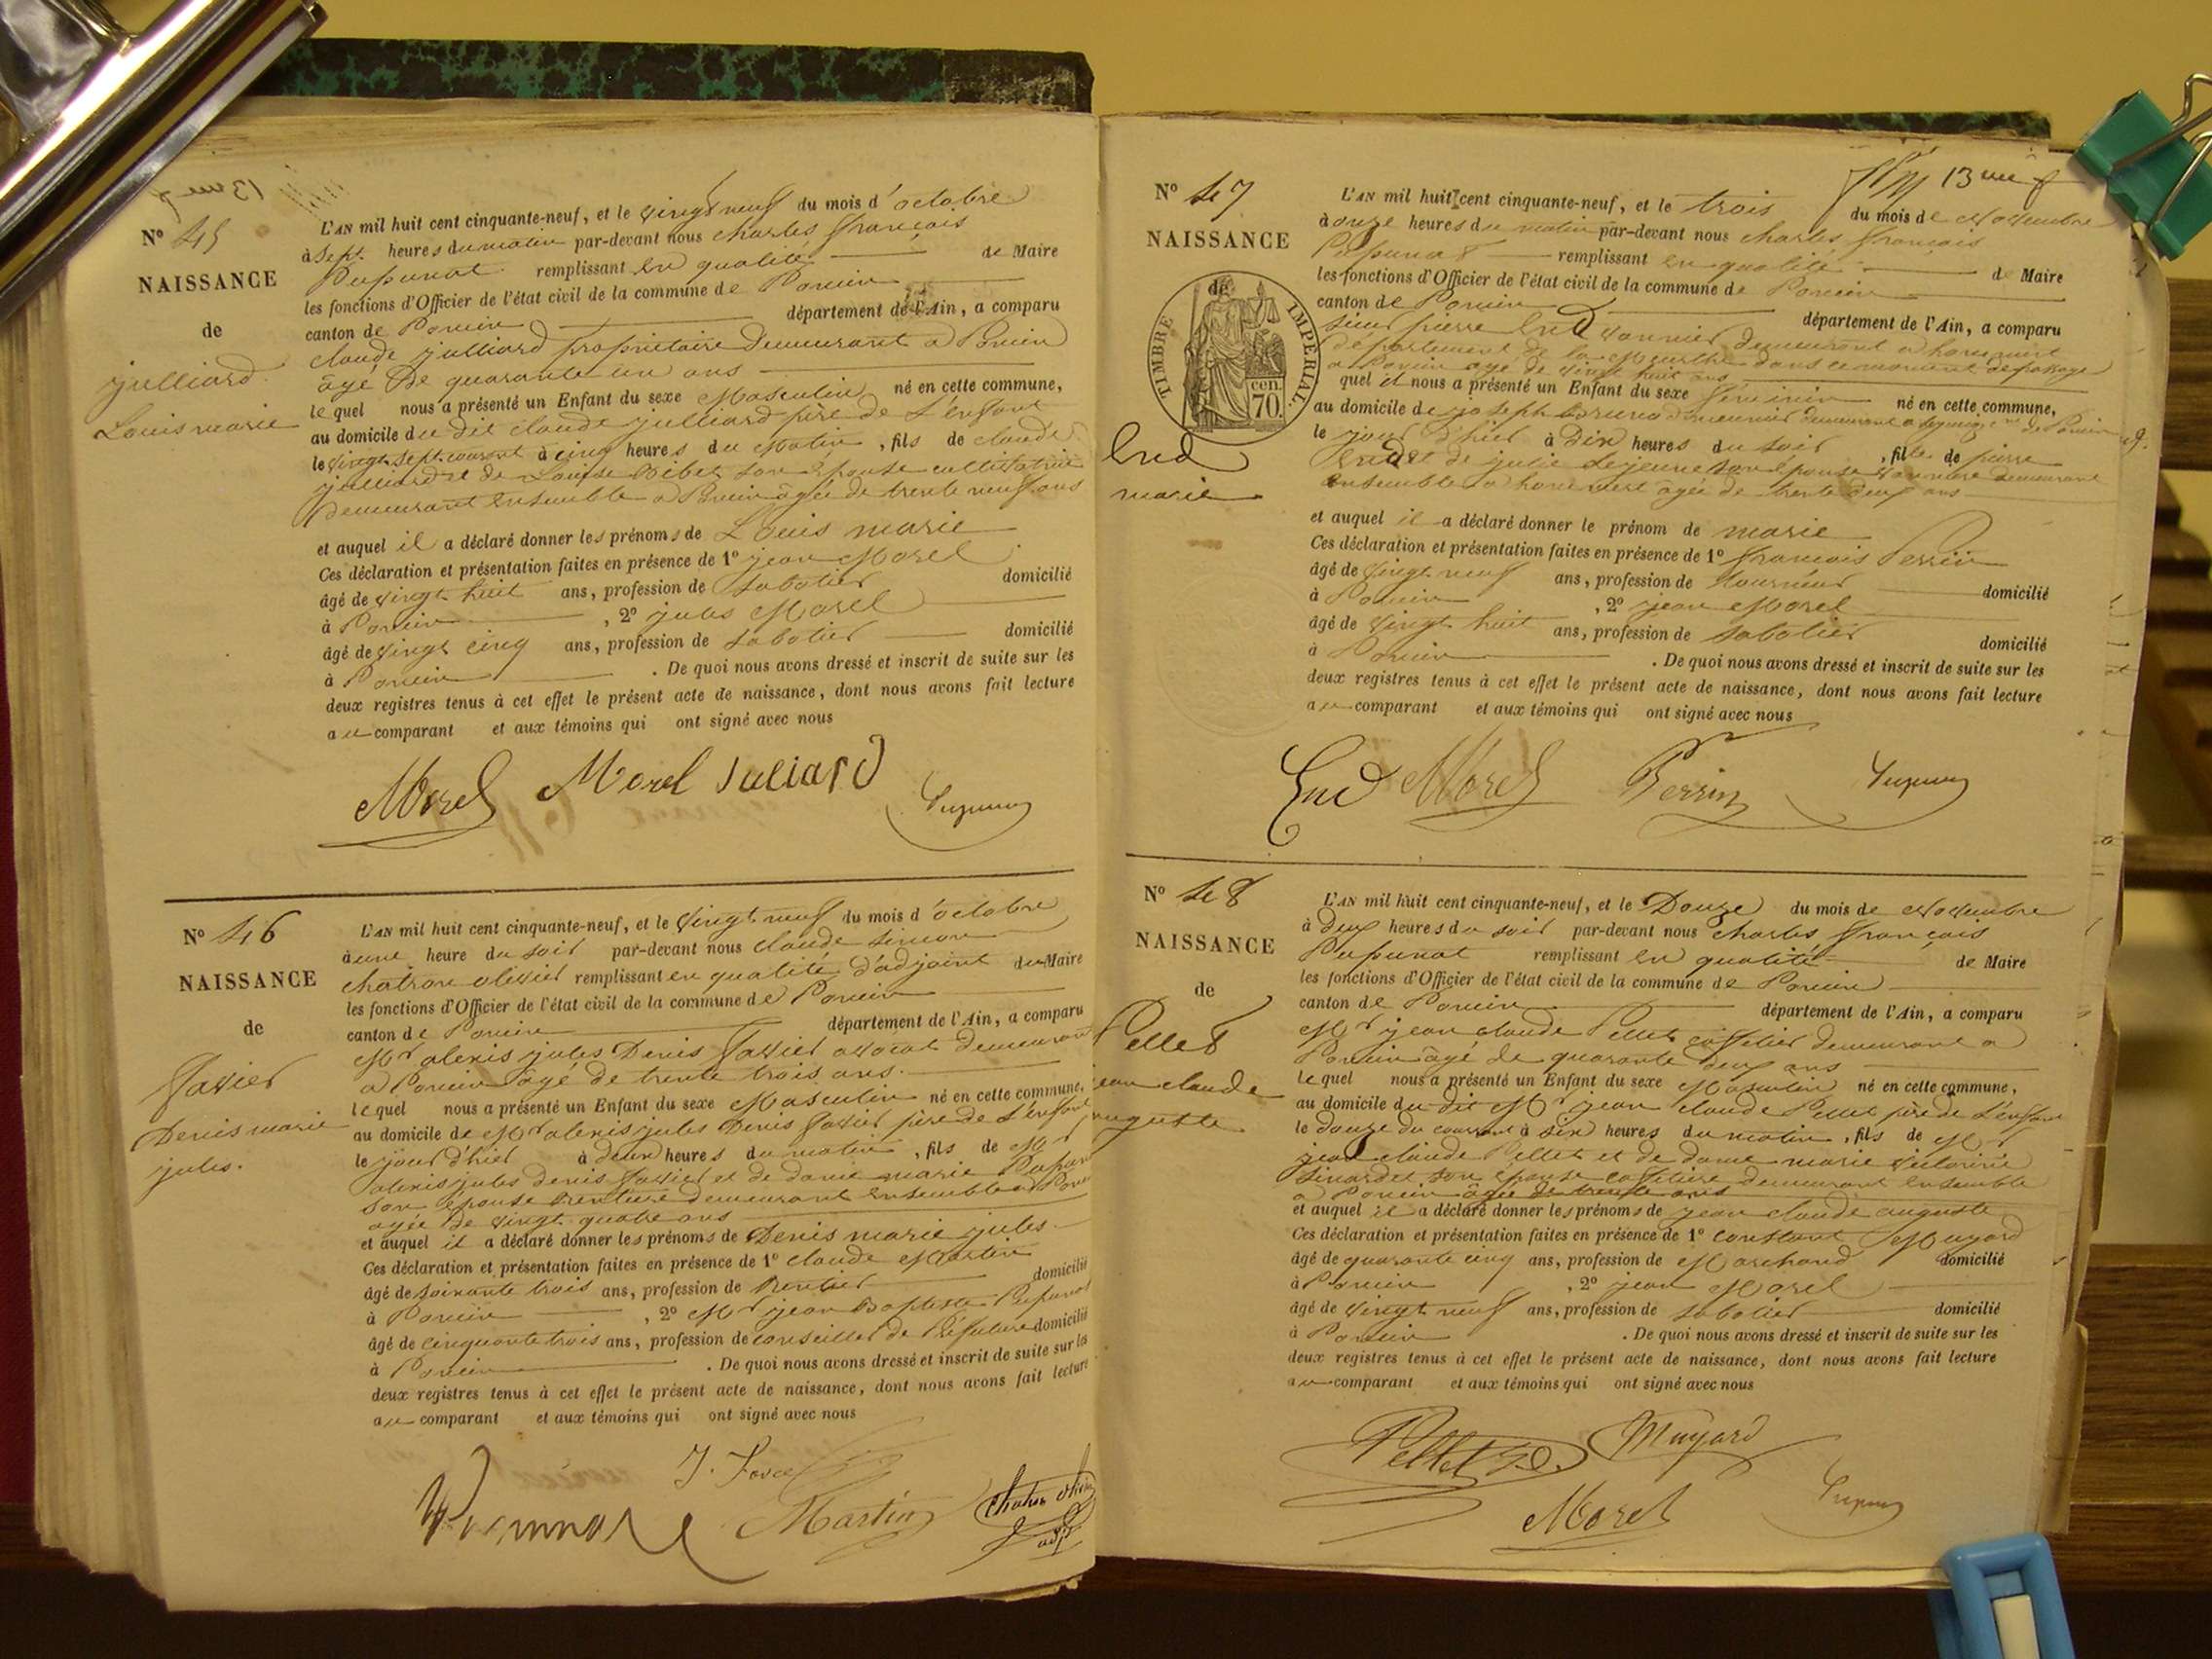 N° 45
NAISSANCE
de
julliard
Louis marie
L'AN mil huit cent cinquante-neuf, et le vingt neuf du mois d'octobre
à sept heures du matin par-devant nous charles françois
Pupunat remplissant en qualité de Maire
les fonctions d'Officier de l'état civil de la commune de Poncin
canton de Poncin département de l'Ain, a comparu
claude julliard propriétaire demeurant a Poncin
âgé de quarante un ans
lequel nous a présenté un Enfant du sexe Masculin né en cette commune,
au domicile du dit claude julliard père de L'enfant
le vingt sept courant à cinq heures du Matin, fils de claude
julliard et de Louise son épouse cultivatrice
demeurant ensemble a Poncin âgée de trente neuf ans
et auquel il a déclaré donner les prénoms de Louis marie
Ces déclaration et présentation faites en présence de 1° jean Morel
âgé de vingt huit ans, profession de sabotier domicilié
à Poncin, 2° jules Morel
âgé de vingt cinq ans, profession de sabotier domicilié
à Poncin. De quoi nous avons dressé et inscrit de suite sur les
deux registres tenus à cet effet le présent acte de naissance, dont nous avons fait lecture
au comparant et aux témoins qui ont signé avec nous
Morel Morel Juliard
N° 46
NAISSANCE
de
favier
Denis marie
jules.
L'AN mil huit cent cinquante-neuf, et le vingt neuf du mois d'octobre
à une heure du soir par-devant nous claude simon
chatron olivier remplissant en qualité d'adjoint du Maire
les fonctions d'Officier de l'état civil de la commune de Poncin
canton de Poncin département de l'Ain, a comparu
Mr alexis jules Denis favier avocat demeurant
a Poncin âgé de trente trois ans.
lequel nous a présenté un Enfant du sexe Masculin né en cette commune,
au domicile de Mr alexis jules Denis favier père de L'enfant
le jour d'hier à deux heures du matin, fils de Mr
alexis jules denis favier et de dame marie
son épouse rentière demeurant ensemble a Poncin
agée de vingt quatre ans
et auquel il a déclaré donner les prénoms de Denis marie jules
Ces déclaration et présentation faites en présence de 1° claude Martin
âgé de soixante trois ans, profession de Rentier domicilié
à Poncin, 2° Mr jean Baptiste Pupunat
âgé de cinquante trois ans, profession de conseiller de Préfecture domicilié
à Poncin. De quoi nous avons dressé et inscrit de suite sur les
deux registres tenus à cet effet le présent acte de naissance, dont nous avons fait lecture
au comparant et aux témoins qui ont signé avec nous
Martin
13me f
N° 47
NAISSANCE
de
TIMBRE IMPERIAL
70 cen.
End
marie
L'AN mil huit cent cinquante-neuf, et le trois du mois de Novembre
à onze heures du matin par-devant nous charles françois
Pupunat remplissant en qualité de Maire
les fonctions d'Officier de l'état civil de la commune de Poncin
canton de Poncin département de l'Ain, a comparu
sieur pierre End vannier demeurant a
département de la Meurthe dans ce moment de passage
a Poncin âgé de vingt huit ans
quel il nous a présenté un Enfant du sexe féminin né en cette commune,
au domicile de joseph meunier demeurant a
le jour d'hier à Dix heures du soir, fille de pierre
End et de julie Lejeune son épouse vannière demeurant
ensemble a âgée de trente deux ans
et auquel il a déclaré donner le prénom de marie
Ces déclaration et présentation faites en présence de 1° françois Perrin
âgé de vingt neuf ans, profession de tourneur domicilié
à Poncin, 2° jean Morel
âgé de vingt huit ans, profession de sabotier domicilié
à Poncin. De quoi nous avons dressé et inscrit de suite sur les
deux registres tenus à cet effet le présent acte de naissance, dont nous avons fait lecture
au comparant et aux témoins qui ont signé avec nous
End Morel Perrin
N° 48
NAISSANCE
de
Pellet
jean claude
auguste
L'AN mil huit cent cinquante-neuf, et le Douze du mois de Novembre
à deux heures du soir par-devant nous charles françois
Pupunat remplissant en qualité de Maire
les fonctions d'Officier de l'état civil de la commune de Poncin
canton de Poncin département de l'Ain, a comparu
Mr jean claude Pellet cafetier demeurant a
Poncin âgé de quarante deux ans
lequel nous a présenté un Enfant du sexe Masculin né en cette commune,
au domicile du dit Mr jean claude Pellet père de L'enfant
le douze du courant à six heures du matin, fils de Mr
jean claude Pellet et de dame marie victorine
sinardet son épouse cafetière demeurant ensemble
a Poncin âgée de trente ans
et auquel il a déclaré donner les prénoms de jean claude auguste
Ces déclaration et présentation faites en présence de 1° constant Muyard
âgé de quarante cinq ans, profession de Marchand domicilié
à Poncin, 2° jean Morel
âgé de vingt neuf ans, profession de sabotier domicilié
à Poncin. De quoi nous avons dressé et inscrit de suite sur les
deux registres tenus à cet effet le présent acte de naissance, dont nous avons fait lecture
au comparant et aux témoins qui ont signé avec nous
Pellet J.C. Muyard
Morel